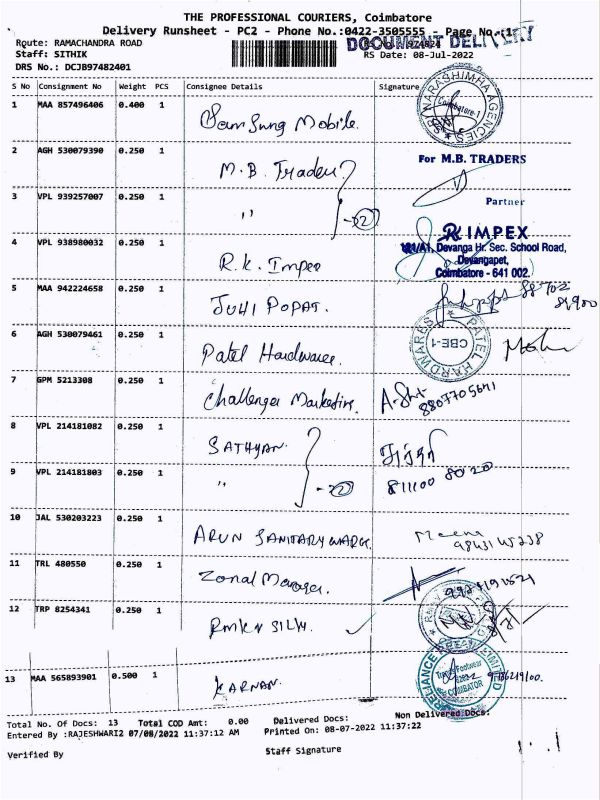 THE PROFESSIONAL COURIERS, Coimbatore
Delivery Runsheet - PC2 - Phone No.:0422-3505555 - Page No.:1
DOCUMENT DELIVERY
Route: RAMACHANDRA ROAD
Staff: SITHIK
RS Date: 08-Jul-2022
DRS No.: DCJB97482401
S No Consignment No Weight PCS Consignee Details Signature
1 MAA 857496406 0.400 1 Samsung Mobile.
SRI NARASHIMHA AGENCIES
Coimbatore-1
2 AGH 530079390 0.250 1 M.B. Traders
For M.B. TRADERS
3 VPL 939257007 0.250 1 " (2)
Partner
4 VPL 938980032 0.250 1 R.K. Impex
RK IMPEX
Devanga Hr. Sec. School Road,
Devangapet,
Coimbatore - 641 002.
5 MAA 942224658 0.250 1 JUHI POPAT.
6 AGH 530079461 0.250 1 Patel Hardware.
PATEL HARDWARES
CBE-1
7 GPM 5213308 0.250 1 Challenger Marketing
8807705641
8 VPL 214181082 0.250 1 SATHYAN.
9 VPL 214181803 0.250 1 " (2)
811100 8020
10 JAL 530203223 0.250 1 ARUN SANITARYWARE.
Meena
11 TRL 480550 0.250 1 Zonal Manager.
12 TRP 8254341 0.250 1 RMKV SILK.
13 MAA 565893901 0.500 1 KARNAN.
RELIANCE LIMITED
Trends Footwear
COIMBATOR
Total No. Of Docs: 13 Total COD Amt: 0.00 Delivered Docs: Non Delivered Docs:
Entered By :RAJESHWARI2 07/08/2022 11:37:12 AM Printed On: 08-07-2022 11:37:22
Verified By Staff Signature